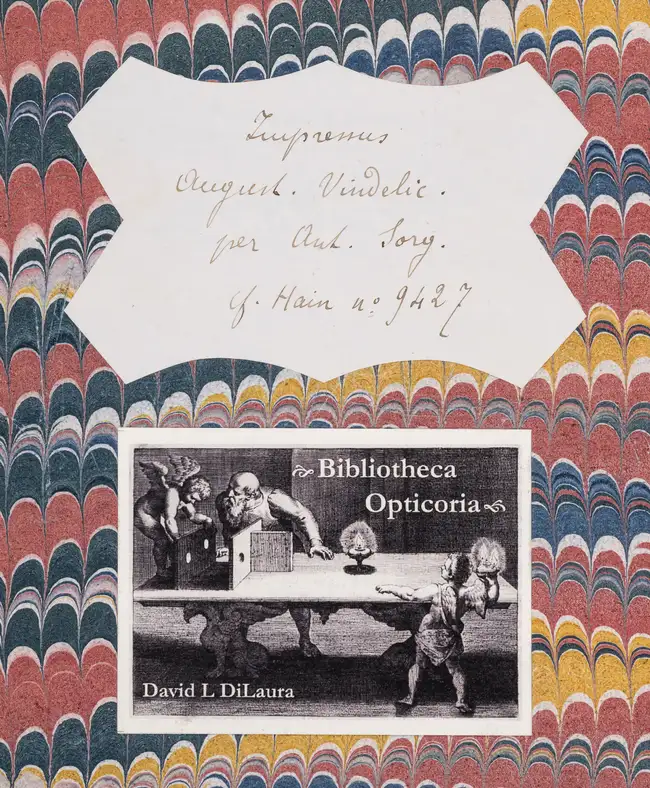 Impressus
August. Vindelic.
per Ant. Sorg.
cf. Hain nº 9427
Bibliotheca
Opticoria
David L DiLaura